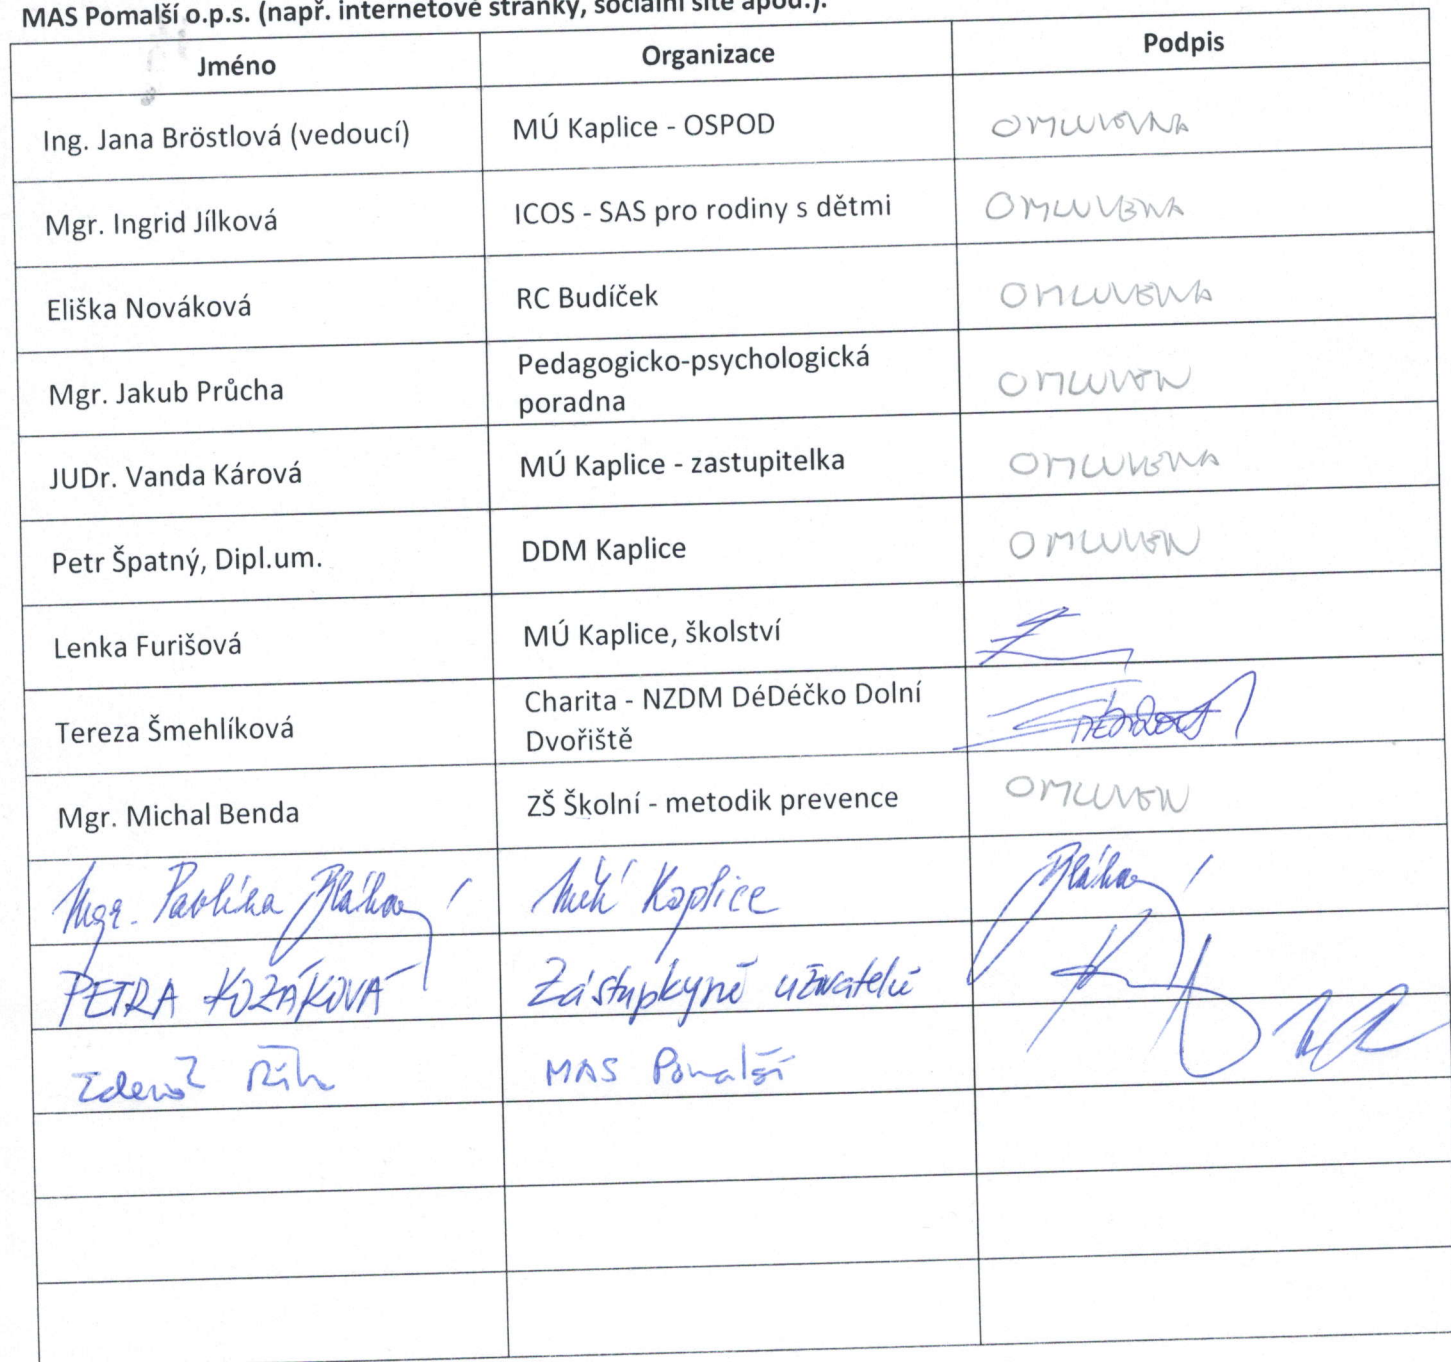 MAS Pomalší o.p.s. (např. internetové stránky, sociální sítě apod.).
Jméno Organizace Podpis
Ing. Jana Bröstlová (vedoucí) MÚ Kaplice - OSPOD OMLUVENA
Mgr. Ingrid Jílková ICOS - SAS pro rodiny s dětmi OMLUVENA
Eliška Nováková RC Budíček OMLUVENA
Mgr. Jakub Průcha Pedagogicko-psychologická
poradna OMLUVEN
JUDr. Vanda Kárová MÚ Kaplice - zastupitelka OMLUVENA
Petr Špatný, Dipl.um. DDM Kaplice OMLUVEN
Lenka Furišová MÚ Kaplice, školství
Tereza Šmehlíková Charita - NZDM DéDéčko Dolní
Dvořiště
Mgr. Michal Benda ZŠ Školní - metodik prevence OMLUVEN
Mgr. Pavlína Bláhová Kaplice Bláhová
PETRA KOZÁKOVÁ Zástupkyně uživatelů
Zdeněk MAS Pomalší